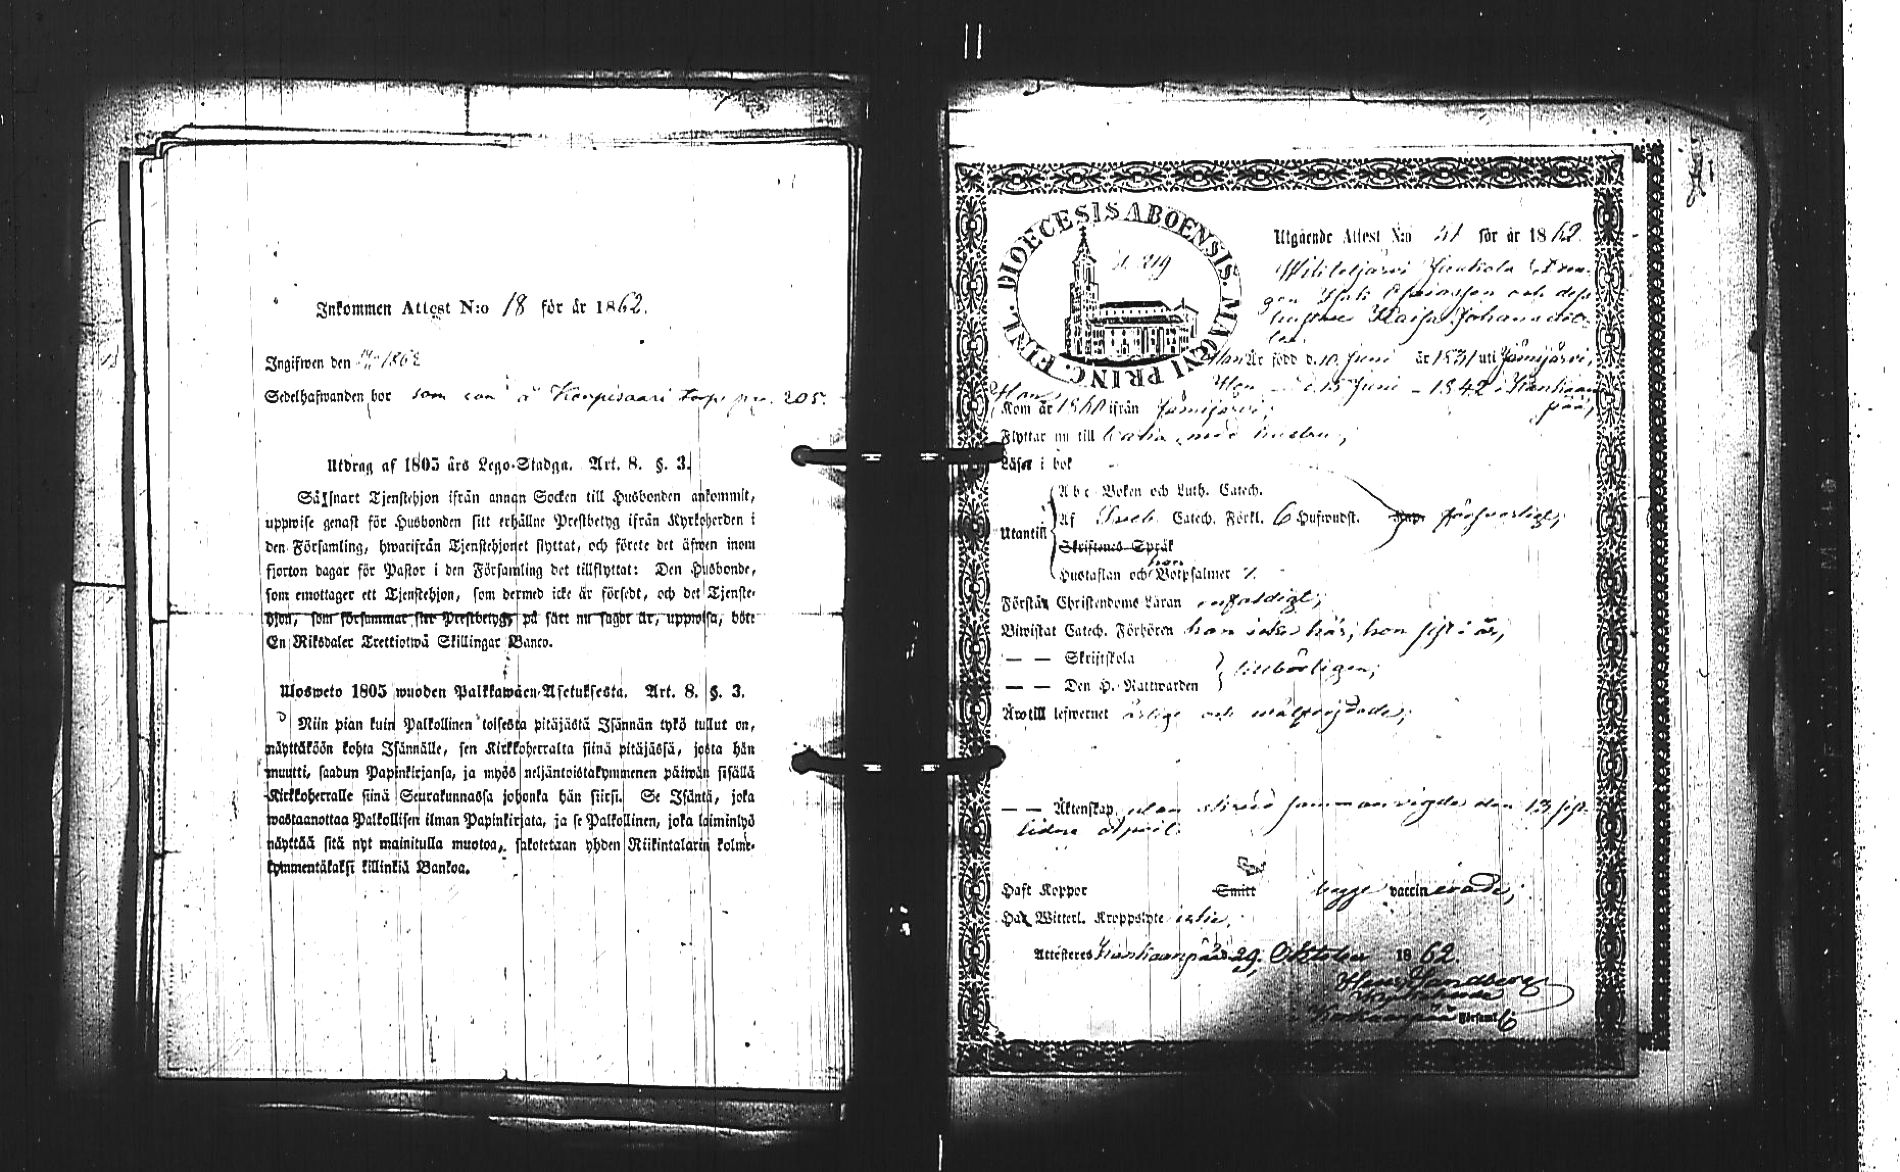 Inkommen Attest N:o 18 för år 1862.
Ingifwen den 1862
Sedelhafwanden bor som con å Konpisaari torp pag. 205.
Utdrag af 1805 års Lego-Stadga. Art. 8. §. 3.
Så snart Tjenstehjon ifrån annan Socken till Husbonden ankommit,
uppwise genast för Husbonden sitt erhållne Prestbetyg ifrån Kyrkoherden i
den Församling, hwarifrån Tjenstehjonet flyttat, och förete det äfwen inom
fjorton dagar för Pastor i den Församling det tillflyttat: Den Husbonde,
som emottager ett Tjenstehjon, som dermed icke är försedt, och det Tjenste-
hjon, som försummar sitt Prestbetyg, på sätt nu sagdt är, uppwisa, böte
En Riksdaler Trettiotwå Skillingar Banco.
Ulosweto 1805 wuoden Palkkawäen-Asetuksesta. Art. 8. §. 3.
Niin pian kuin Palkollinen toisesta pitäjästä Isännän tykö tullut on,
näyttäköön kohta Isännälle, sen Kirkkoherralta siinä pitäjässä, josta hän
muutti, saadun Papinkirjansa, ja myös neljäntoistakymmenen päiwän sisällä
Kirkkoherralle siinä Seurakunnassa johonka hän siirsi. Se Isäntä, joka
wastaanottaa Palkollisen ilman Papinkirjata, ja se Palkollinen, joka laiminlyö
näyttää sitä nyt mainitulla muotoa, sakotetaan yhden Riikintalarin kolme-
kymmentäkaksi killinkiä Bankoa.
FINL. DIOECESIS ABOENSIS. MAGNI PRINC.
219
Utgående Attest N:o 41 för år 1862.
Juckola Dren-
gen Isak och dess
hustru Kaisa Johansdot-
ter.
Han är född d. 10 Juni år 1831 uti Jämijärvi,
Hon i 15 Juni - 1842 i Kankaan-
pää,
Han Kom år 1860 ifrån Jämijärvi;
Flyttar nu till med hustru,
Läser i bok
Abc-Boken och Luth. Catech.
Utantill
Af Sweb. Catech. Förkl. 6 Hufwudst. förswarligt;
Skriftenes Språk
Hustaflan och Botpsalmer
Förstår Christendoms Läran enfaldigt;
Biwistat Catech. Förhören han icke här, hon sist i år,
— — Skriftskola
— — Den H. Nattwarden
tillbörligen;
Äwen till lefwernet ärlige och wälfrejdade;
— — Äktenskap utan sammanvigde den 13 sist-
lidne April.
Haft Koppor Smitt begge vaccinerade;
Har Witterl. Kroppslyte icke,
Attesteras Kankaanpää d. 29. Oktober 1862.
Sandberg
Kyrkoherde
i Kankaanpää Församl.